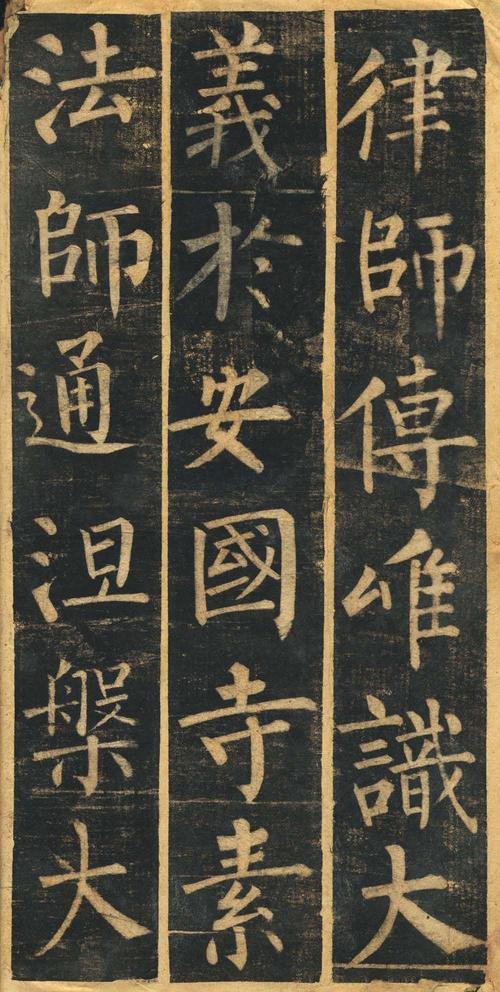 律師傳唯識大
義於安國寺素
法師通涅槃大